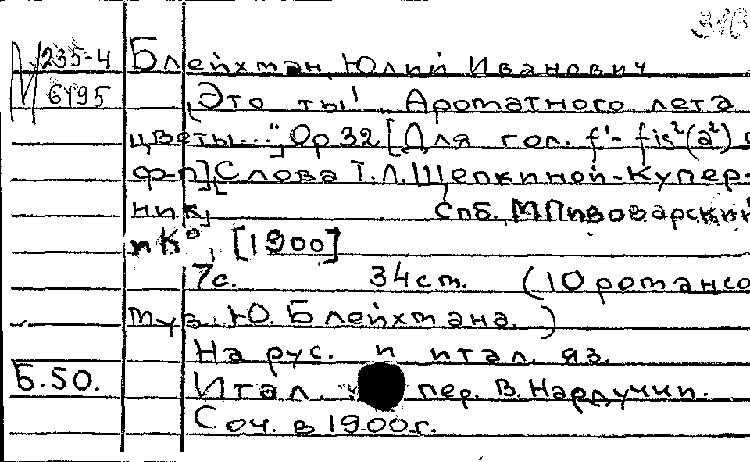 М 235-4 Блейхман, Юлий Иванович
6495 "Это ты! Ароматного лета
цветы...", Ор 32 [Для гол. f¹- fis²(a²) с
ф-п] [Слова Т.Л.Щепкиной-Купер-
ник] Спб. М Пивоварский
и К°, [1900]
7с. 34 см. (10 романсо
муз. Ю. Блейхмана.)
На рус. и итал. яз.
Б.50. Итал. пер. В. Нардуччи.
Соч. в 1900г.